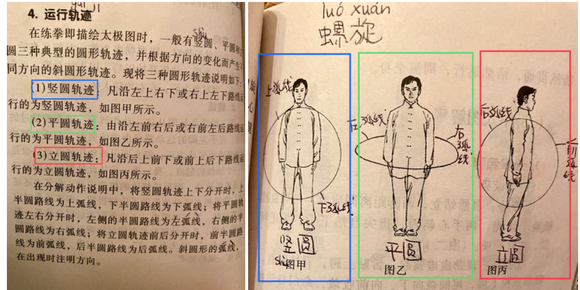 yùn jī
4. 运行轨迹
shù
在练拳即描绘太极图时，一般有竖圆、平圆和
圆三种典型的圆形轨迹，并根据方向的变化而产生
同方向的斜圆形轨迹。现将三种圆形轨迹说明如下
1)竖圆轨迹：凡沿左上右下或右上左下路线运
行的为竖圆轨迹，如图甲所示。
(2)平圆轨迹：由沿左前右后或右前左后路线运
行的为平圆轨迹，如图乙所示。
3)立圆轨迹：凡沿后上前下或前上后下路线运
行的为立圆轨迹，如图丙所示。
在分解动作说明中，将竖圆轨迹上下分开时，上
半圆路线为上弧线，下半圆路线为下弧线；将平圆轨
迹左右分开时，左侧的半圆路线为左弧线，右侧的半
圆路线为右弧线；将立圆轨迹前后分开时，前半圆路
线为前弧线，后半圆路线为后弧线。斜圆形的弧线，
在出现时注明方向。
luó xuán
螺旋
上弧线
下弧线
竖圆
shù
图甲
左弧线
右弧线
平圆
图乙
后弧线
前弧线
立圆
图丙